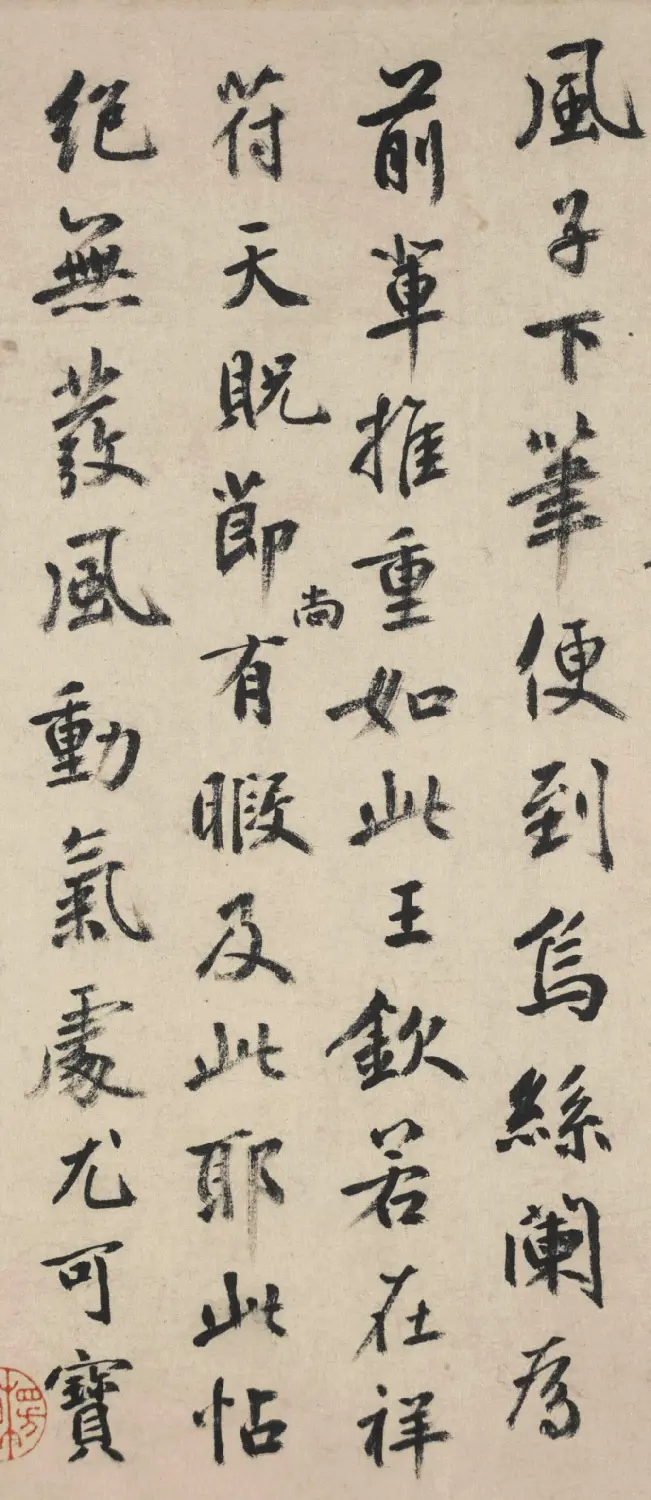 風子下筆便到烏絲闌為
前輩推重如此王欽若在祥
符天貺節尚有暇及此耶此帖
絕無發風動氣處尤可寶